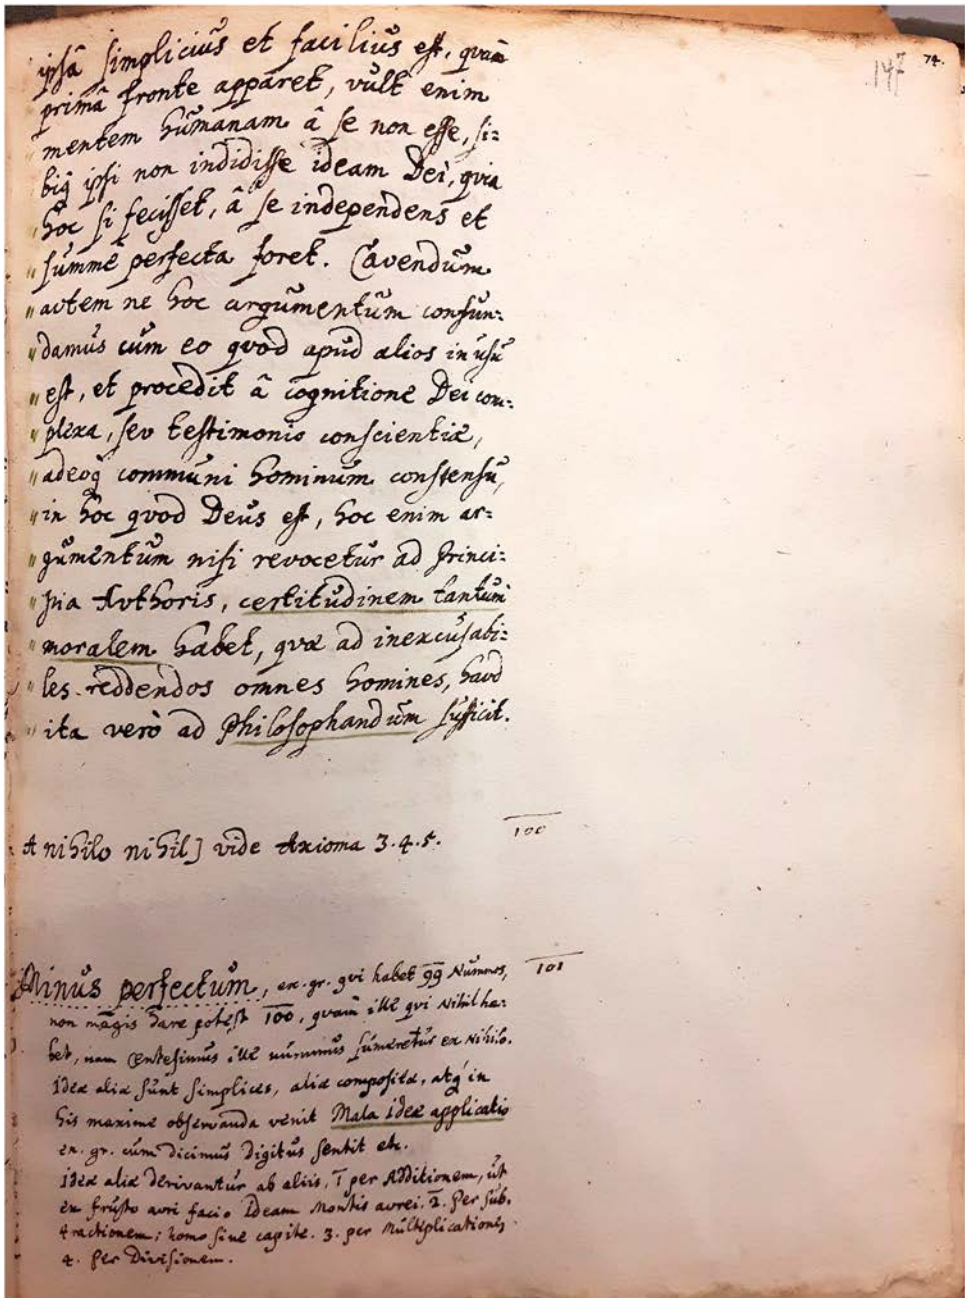 147 74.
ipsâ simplicius et facilius est, quam
primâ fronte apparet, vult enim
mentem humanam â se non esse, si=
biq ipsi non indidisse ideam Dei, qvia
hoc si fecisset, â se independens et
" summè perfecta foret. Cavendum
" autem ne hoc argumentum confun=
" damus cum eo qvod apud alios in usu
" est, et procedit â cognitione Dei com=
" plexa, seu testimonio conscientiæ,
" adeoq communi hominum constensu,
" in hoc qvod Deus est, hoc enim ar=
" gumentum nisi revocetur ad Princi=
" pia Authoris, certitudinem tantum
" moralem habet, qvæ ad inexcusabi=
" les reddendos omnes homines, haud
" ita verò ad Philosophandum sufficit.
A nihilo nihil] vide Axioma 3.4.5. 100
Minus perfectum, ex. gr. qvi habet 99 Nummos, 101
non magis dare potest 100, quam ille qvi Nihil ha=
bet, nam Centesimus ille nummus sumeretur ex Nihilo.
Ideæ aliæ sunt simplices, aliæ compositæ, atq in
his maxime observanda venit Mala ideæ applicatio
ex. gr. cum dicimus Digitus sentit etc.
ideæ aliæ derivantur ab aliis, 1 per Additionem, ut
ex frusto auri facio Ideam Montis aurei. 2. Per Sub,
tractionem; homo sine capite. 3. per Multiplicationem
4. Per Divisionem.